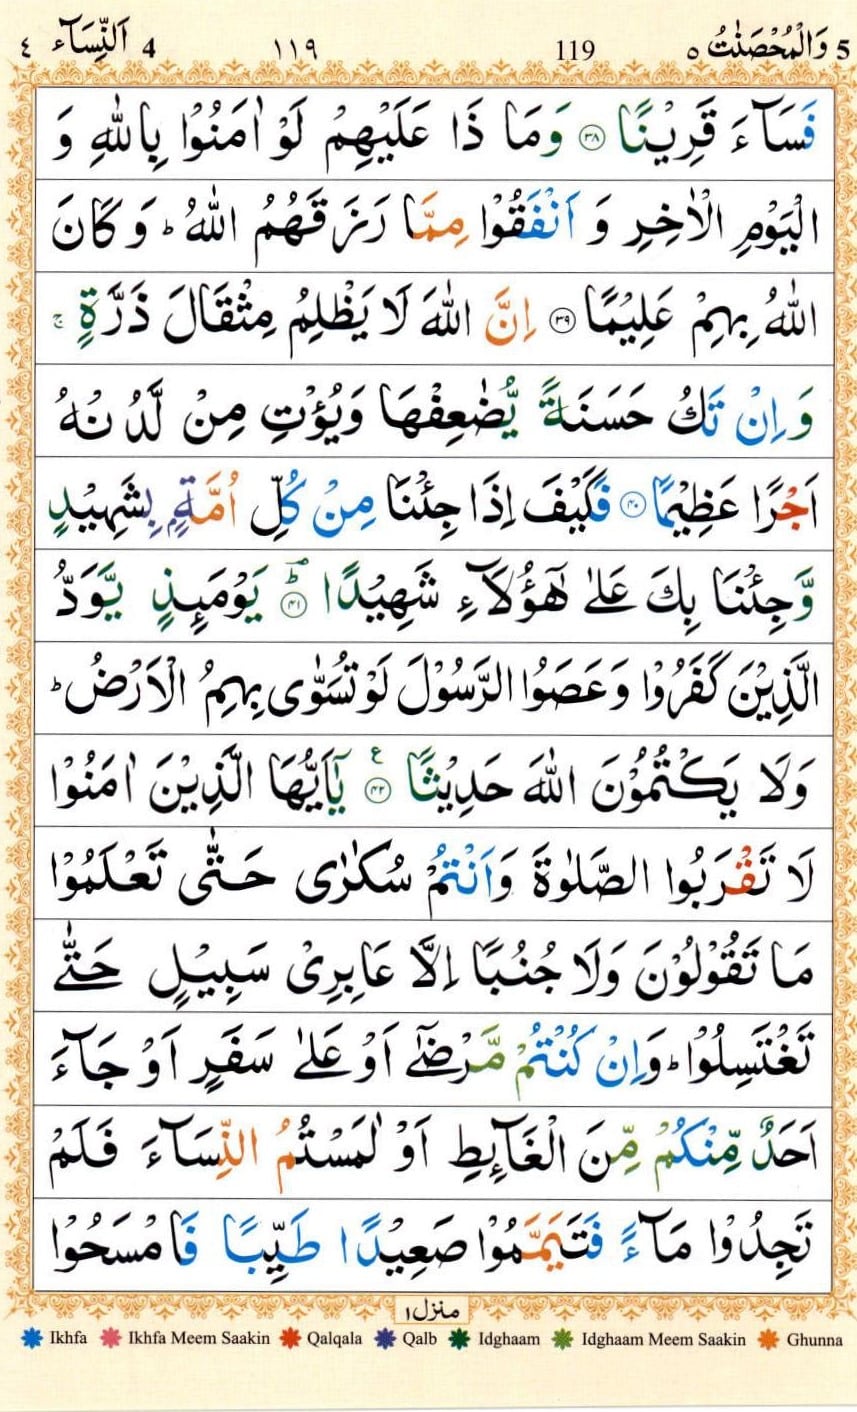 5 وَالْمُحْصَنٰتُ ٥ 119 ١١٩ 4 اَلنِّسَآء ٤
فَسَآءَ قَرِيْنًا ﴿٣٨﴾ وَمَا ذَا عَلَيْهِمْ لَوْ اٰمَنُوْا بِاللّٰهِ وَ
الْيَوْمِ الْاٰخِرِ وَ اَنْفَقُوْا مِمَّا رَزَقَهُمُ اللّٰهُ ؕ وَ كَانَ
اللّٰهُ بِهِمْ عَلِيْمًا ﴿٣٩﴾ اِنَّ اللّٰهَ لَا يَظْلِمُ مِثْقَالَ ذَرَّةٍ ۚ
وَ اِنْ تَكُ حَسَنَةً يُّضٰعِفْهَا وَيُؤْتِ مِنْ لَّدُنْهُ
اَجْرًا عَظِيْمًا ﴿٤٠﴾ فَكَيْفَ اِذَا جِئْنَا مِنْ كُلِّ اُمَّةٍۭ بِشَهِيْدٍ
وَّجِئْنَا بِكَ عَلٰى هٰٓؤُلَآءِ شَهِيْدًا ﴿٤١﴾ؕ يَوْمَىِٕذٍ يَّوَدُّ
الَّذِيْنَ كَفَرُوْا وَعَصَوُا الرَّسُوْلَ لَوْ تُسَوّٰى بِهِمُ الْاَرْضُ ؕ
وَلَا يَكْتُمُوْنَ اللّٰهَ حَدِيْثًا ﴿٤٢﴾ ع يٰٓاَيُّهَا الَّذِيْنَ اٰمَنُوْا
لَا تَقْرَبُوا الصَّلٰوةَ وَاَنْتُمْ سُكٰرٰى حَتّٰى تَعْلَمُوْا
مَا تَقُوْلُوْنَ وَلَا جُنُبًا اِلَّا عَابِرِيْ سَبِيْلٍ حَتّٰى
تَغْتَسِلُوْا ؕ وَاِنْ كُنْتُمْ مَّرْضٰٓى اَوْ عَلٰى سَفَرٍ اَوْ جَآءَ
اَحَدٌ مِّنْكُمْ مِّنَ الْغَآىِٕطِ اَوْ لٰمَسْتُمُ النِّسَآءَ فَلَمْ
تَجِدُوْا مَآءً فَتَيَمَّمُوْا صَعِيْدًا طَيِّبًا فَامْسَحُوْا
منزل ١
Ikhfa Ikhfa Meem Saakin Qalqala Qalb Idghaam Idghaam Meem Saakin Ghunna